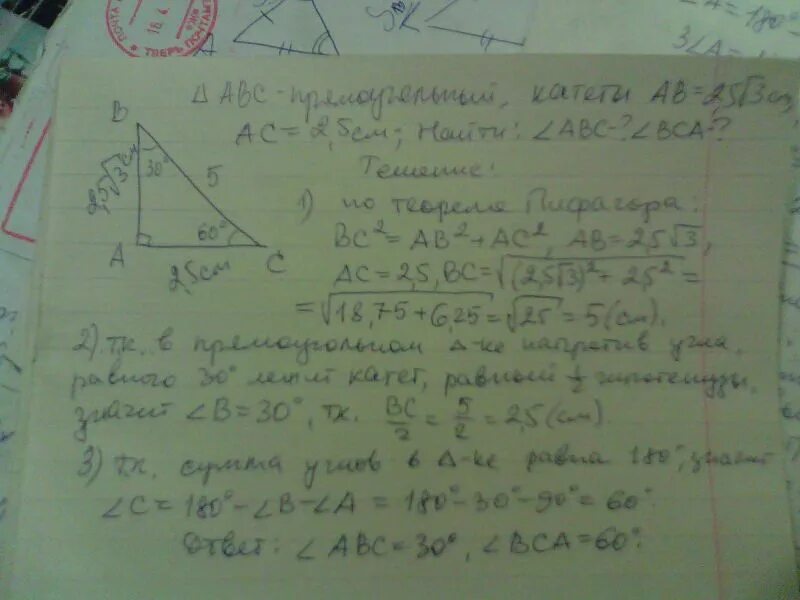 ПОЧТА
18.4
ТВЕРЬ ПОЧТАМТ
∠A = 180° -
3∠A =
△ ABC - прямоугольный, катеты AB = 2,5√3 см,
AC = 2,5 см; Найти: ∠ABC-? ∠BCA-?
Решение:
B
30°
5
2,5√3 см
60°
A
C
2,5 см
1) по теореме Пифагора:
BC² = AB² + AC², AB = 2,5√3,
AC = 2,5, BC = √((2,5√3)² + 2,5²) =
= √(18,75 + 6,25) = √25 = 5 (см).
2) т.к. в прямоугольном △-ке напротив угла,
равного 30° лежит катет, равный ½ гипотенузы,
значит ∠B = 30°, т.к. BC/2 = 5/2 = 2,5 (см).
3) т.к. сумма углов в △-ке равна 180°, значит
∠C = 180° - ∠B - ∠A = 180° - 30° - 90° = 60°.
Ответ: ∠ABC = 30°, ∠BCA = 60°.